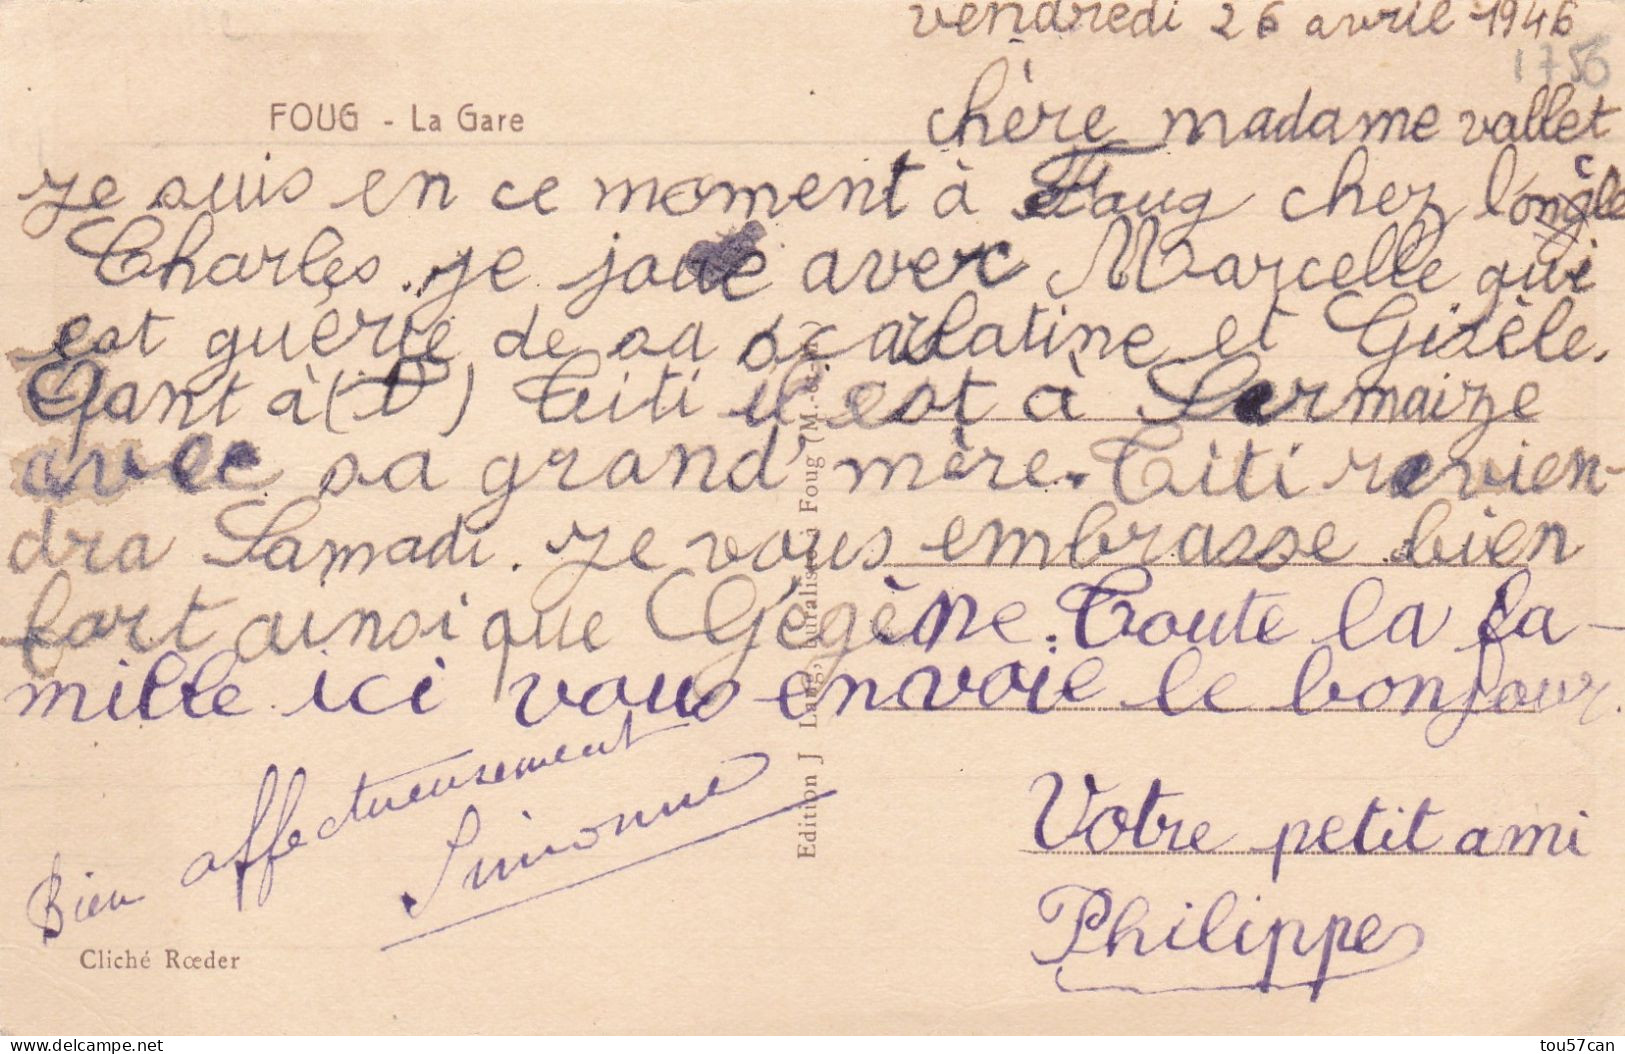 vendredi 26 avril 1946
1756
FOUG - La Gare
chère madame vallet
je suis en ce moment à Foug chez l'oncle
Charles. je joue avec Marcelle qui
est guérie de sa scarlatine et Gisèle.
Qant à (D) Titi il est à Sermaize
avec sa grand mère. Titi revien-
dra Samadi. je vous embrasse bien
fort ainsi que Gégène. Toute la fa-
mille ici vous envoie le bonjour.
Bien affectueusement
Simonne
Votre petit ami
Philippe
Edition J Lang, buraliste à Foug (M.-&-M.)
Cliché Rœder
delcampe.net
tou57can